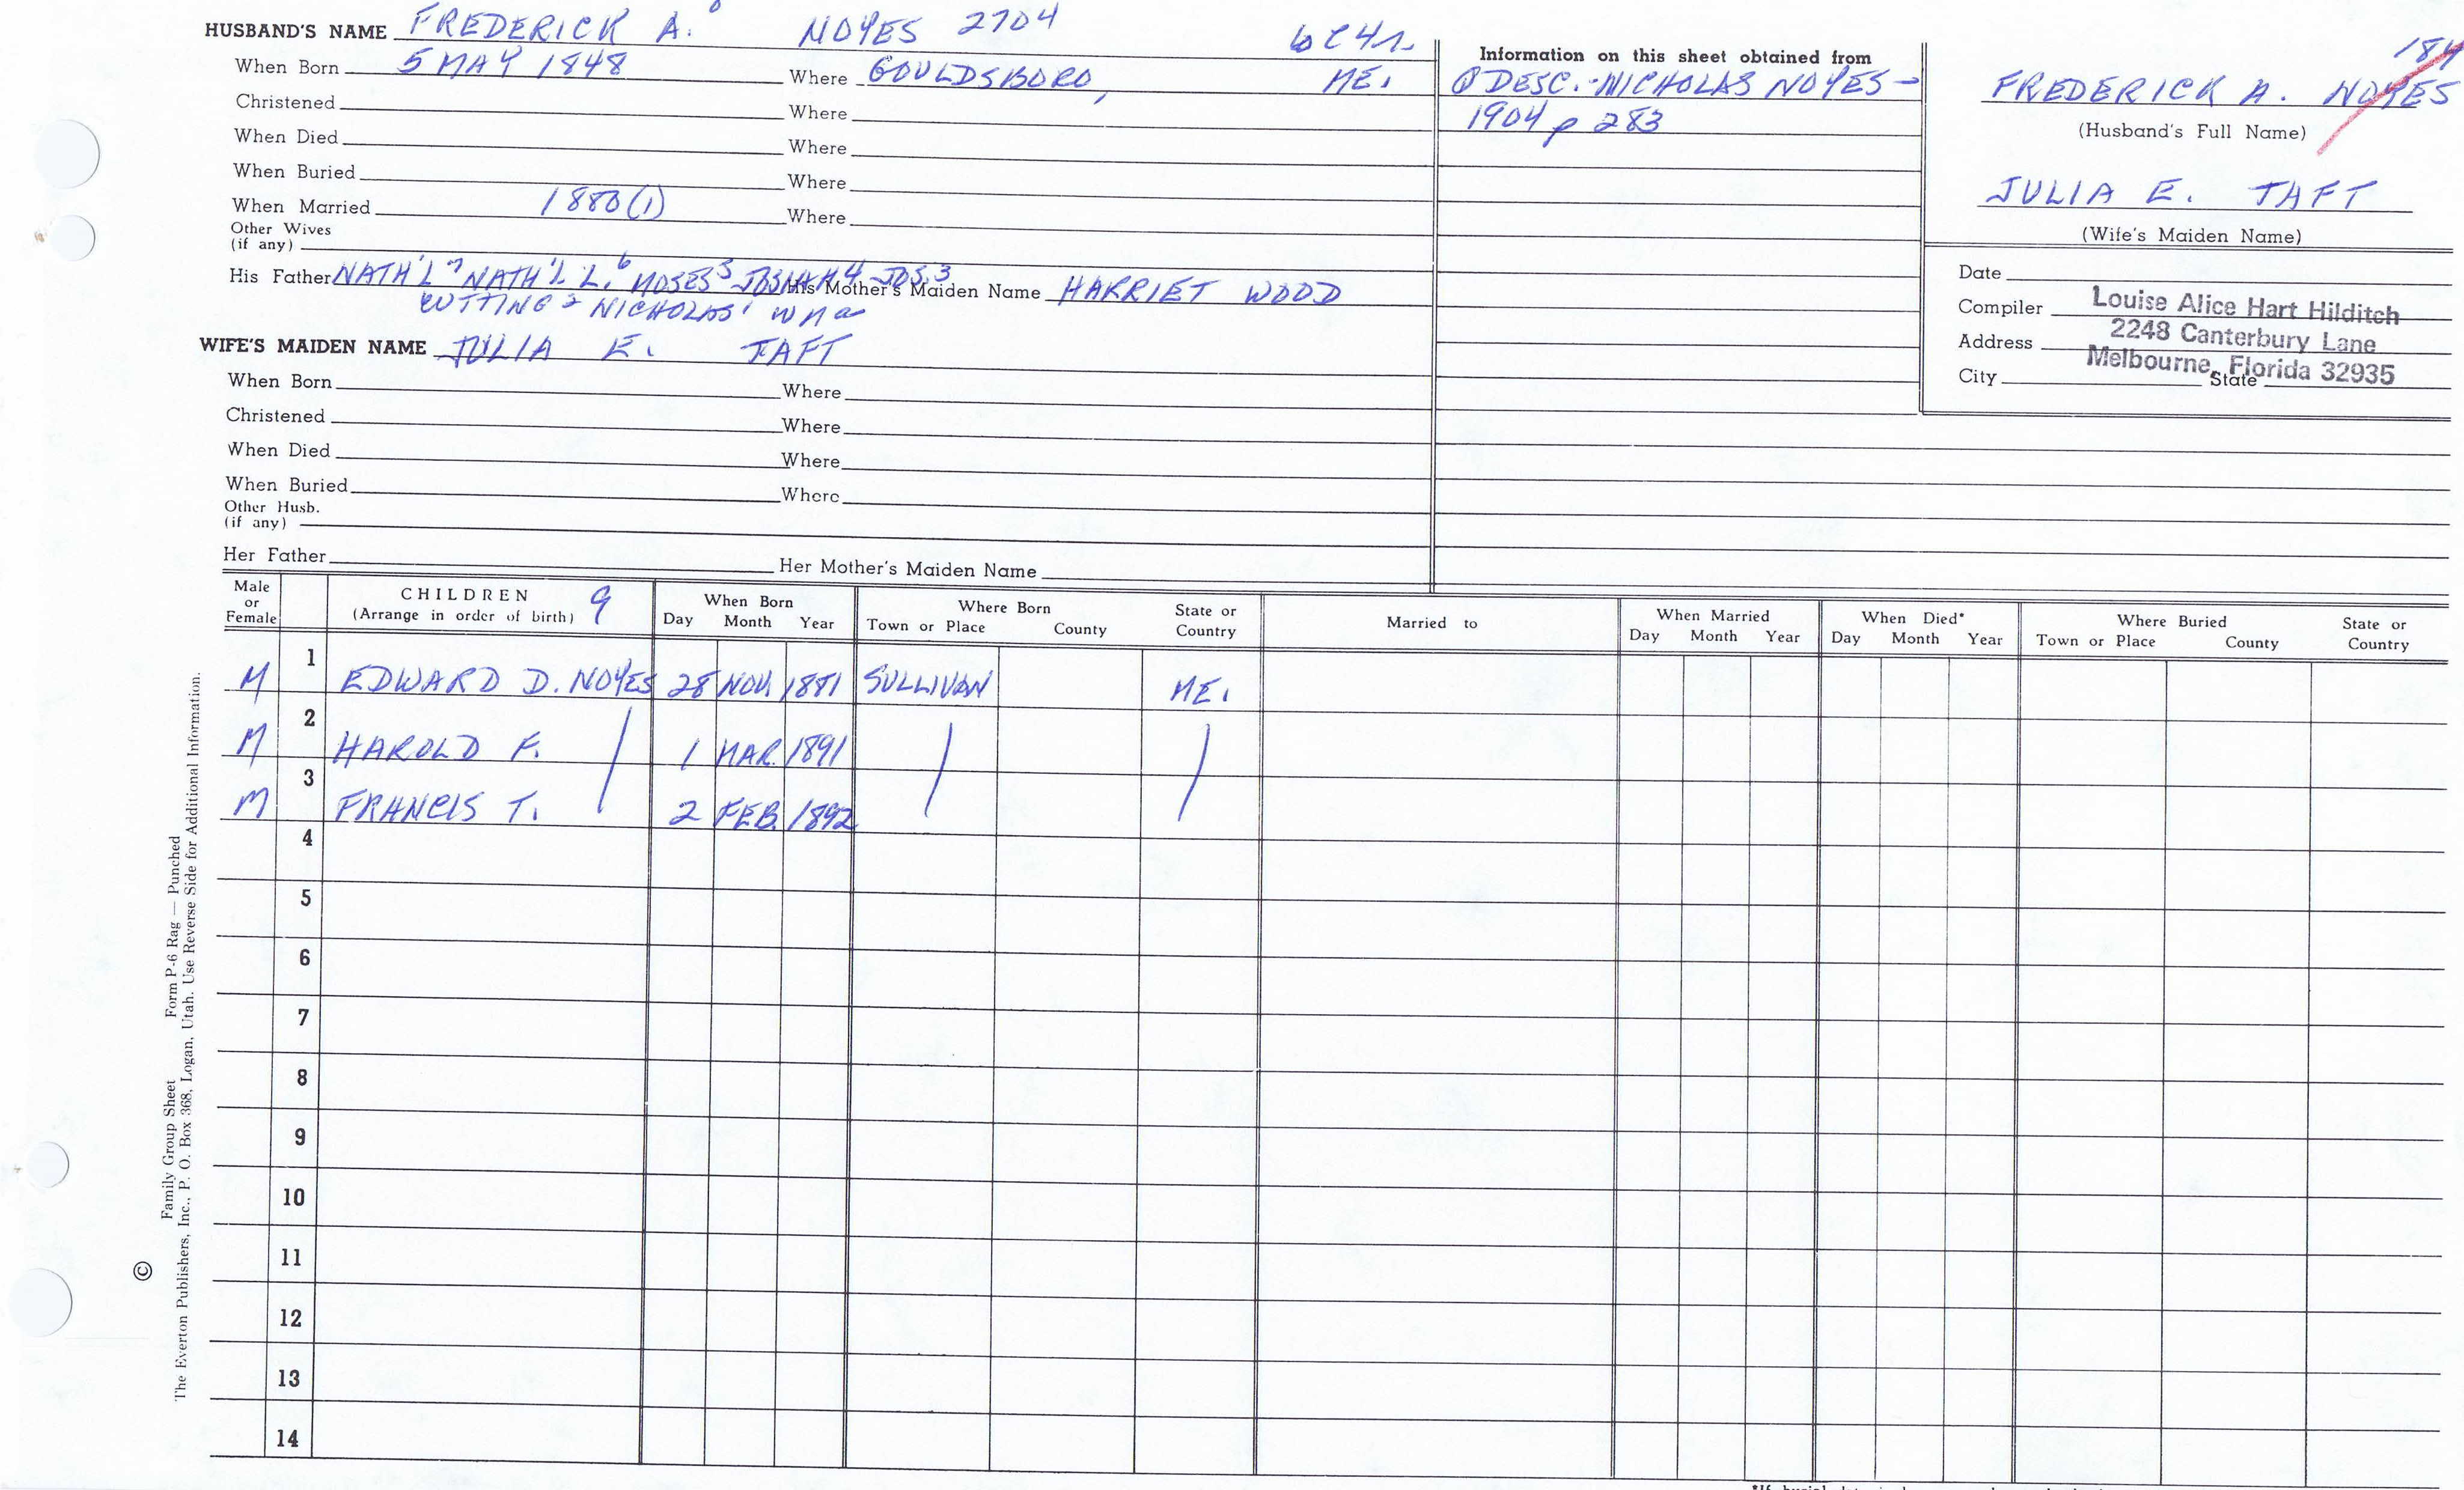 HUSBAND'S NAME FREDERICK A. NOYES 2704
When Born 5 MAY 1848 Where GOULDSBORO, ME.
Christened Where
When Died Where
When Buried Where
When Married 1880(1) Where
Other Wives
(if any)
His Father NATH'L 7 NATH'L L. 6 MOSES 5 JOSIAH 4 JOS. 3 His Mother's Maiden Name HARRIET WOOD
CUTTING 2 NICHOLAS 1
WIFE'S MAIDEN NAME JULIA E. TAFT
When Born Where
Christened Where
When Died Where
When Buried Where
Other Husb.
(if any)
Her Father Her Mother's Maiden Name
Information on this sheet obtained from
DESC. NICHOLAS NOYES -
1904 p 283
184
FREDERICK A. NOYES
(Husband's Full Name)
JULIA E. TAFT
(Wife's Maiden Name)
Date
Compiler Louise Alice Hart Hilditch
Address 2248 Canterbury Lane
Melbourne, Florida 32935
City State
Male or Female CHILDREN (Arrange in order of birth) 9 When Born Day Month Year Where Born Town or Place County State or Country Married to When Married Day Month Year When Died* Day Month Year Where Buried Town or Place County State or Country
M 1 EDWARD D. NOYES 28 NOV. 1881 SULLIVAN ME.
M 2 HAROLD F. / 1 MAR. 1891 / /
M 3 FRANCIS T. 2 FEB. 1892
4
5
6
7
8
9
10
11
12
13
14
© Family Group Sheet Form P-6 Rag — Punched
The Everton Publishers, Inc., P. O. Box 368, Logan, Utah. Use Reverse Side for Additional Information.